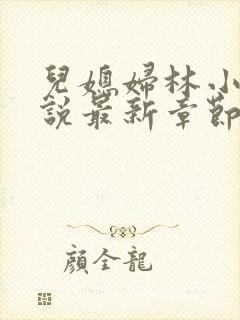 兒媳婦林小
說最新章節
顏全龍